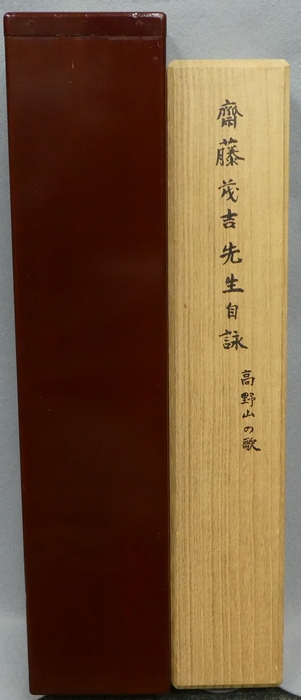 齋藤茂吉先生自詠
高野山の歌